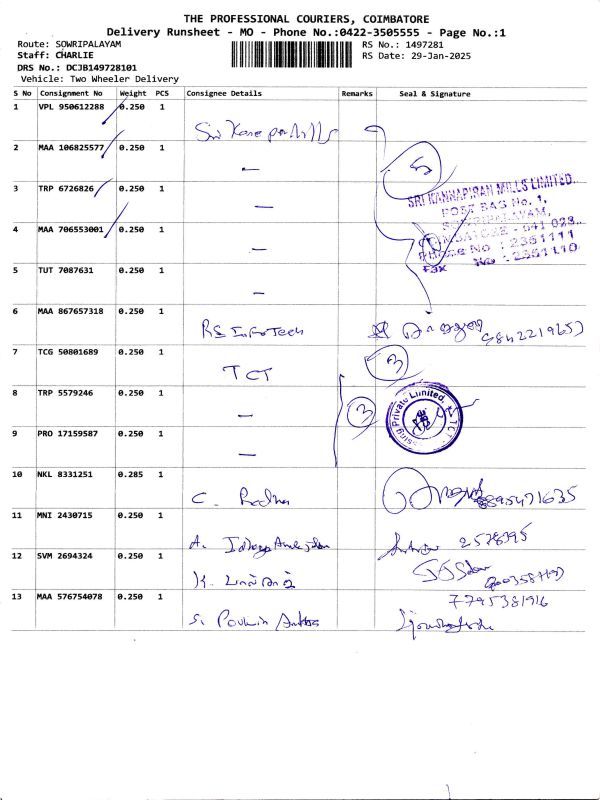 THE PROFESSIONAL COURIERS, COIMBATORE
Delivery Runsheet - MO - Phone No.:0422-3505555 - Page No.:1
Route: SOWRIPALAYAM RS No.: 1497281
Staff: CHARLIE RS Date: 29-Jan-2025
DRS No.: DCJB149728101
Vehicle: Two Wheeler Delivery
S No Consignment No Weight PCS Consignee Details Remarks Seal & Signature
1 VPL 950612288 0.250 1
2 MAA 106825577 0.250 1 —
3 TRP 6726826 0.250 1 —
SRI KANNAPIRAN MILLS LIMITED.
POST BAG No. 1,
SOWRIPALAYAM,
COIMBATORE - 641 028.
Phone No : 2351111
Fax No : 2351110
4 MAA 706553001 0.250 1 —
5 TUT 7087631 0.250 1 —
6 MAA 867657318 0.250 1 RS InfoTech
7 TCG 50801689 0.250 1 TCT 3
8 TRP 5579246 0.250 1 — 3
Private Limited,
9 PRO 17159587 0.250 1 —
10 NKL 8331251 0.285 1 C. Radha
11 MNI 2430715 0.250 1 A.
12 SVM 2694324 0.250 1 K.
13 MAA 576754078 0.250 1 7795381916
S.